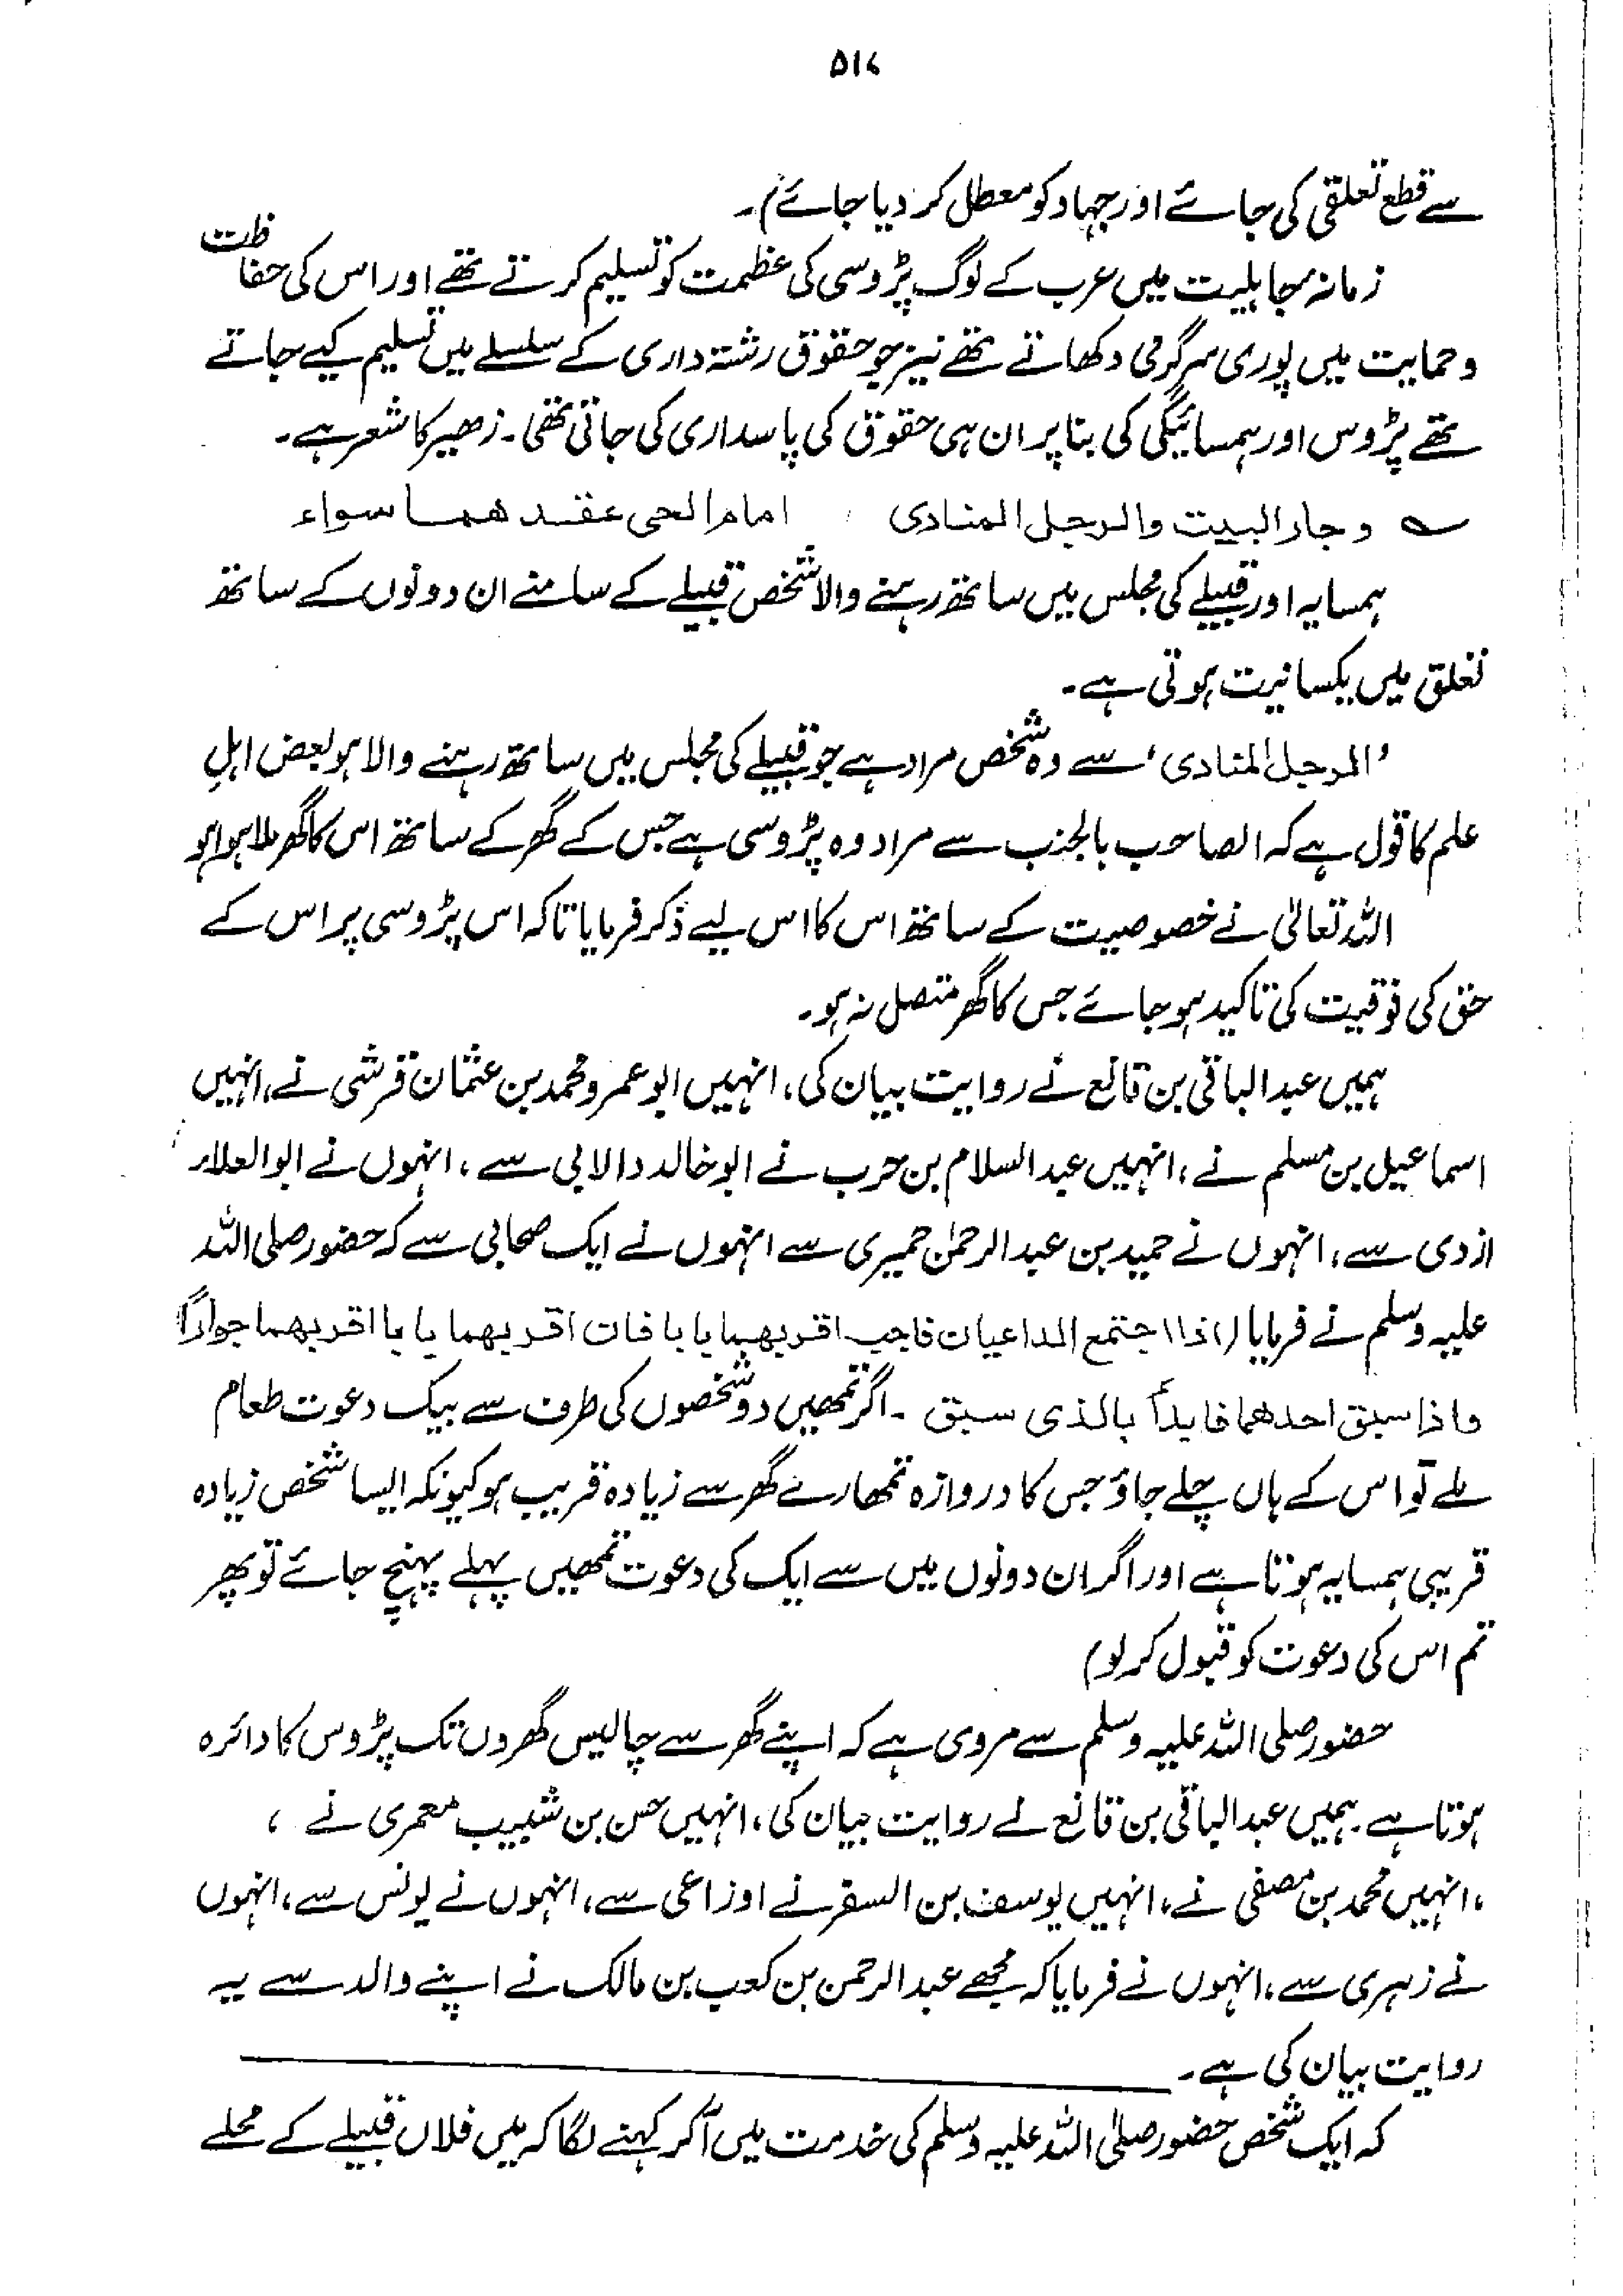 ۵۱۷
سے قطع تعلقی کی جائے اور جہاد کو معطل کر دیا جائے)۔
زمانۂ جاہلیت میں عرب کے لوگ پڑوسی کی عظمت کو تسلیم کرتے تھے اور اس کی حفاظت
و حمایت میں پوری سرگرمی دکھاتے تھے نیز جو حقوق رشتہ داری کے سلسلے میں تسلیم کیے جاتے
تھے پڑوس اور ہمسائیگی کی بنا پر ان ہی حقوق کی پاسداری کی جاتی تھی۔ زھیر کا شعر ہے۔
؎ وجار البیت والرجل المنادی امام الحی عقدھما سواء
ہمسایہ اور قبیلے کی مجلس میں ساتھ رہنے والا شخص قبیلے کے سامنے ان دونوں کے ساتھ
تعلق میں یکسانیت ہوتی ہے۔
'الرجل المنادی' سے وہ شخص مراد ہے جو قبیلے کی مجلس میں ساتھ رہنے والا ہو بعض اہلِ
علم کا قول ہے کہ الصاحب بالجنب سے مراد وہ پڑوسی ہے جس کے گھر کے ساتھ اس کا گھر ملا ہوا ہو
اللہ تعالیٰ نے خصوصیت کے ساتھ اس کا اس لیے ذکر فرمایا تاکہ اس پڑوسی پر اس کے
حق کی فوقیت کی تاکید ہو جائے جس کا گھر متصل نہ ہو۔
ہمیں عبدالباقی بن قانع نے روایت بیان کی، انہیں ابو عمرو محمد بن عثمان قرشی نے، انہیں
اسماعیل بن مسلم نے، انہیں عبدالسلام بن حرب نے ابو خالد دالابی سے، انہوں نے ابوالعلاء
ازدی سے، انہوں نے حمید بن عبدالرحمٰن حمیری سے انہوں نے ایک صحابی سے کہ حضور صلی اللہ
علیہ وسلم نے فرمایا (اذا اجتمع الداعیان فاجب اقربھما بابا فان اقربھما بابا اقربھما جوارًا
واذا سبق احدھما فابدأ بالذی سبق ۔ اگر تمھیں دو شخصوں کی طرف سے بیک دعوت طعام
ملے تو اس کے ہاں چلے جاؤ جس کا دروازہ تمھارے گھر سے زیادہ قریب ہو کیونکہ ایسا شخص زیادہ
قریبی ہمسایہ ہوتا ہے اور اگر ان دونوں میں سے ایک کی دعوت تمھیں پہلے پہنچ جائے تو پھر
تم اس کی دعوت کو قبول کر لو)
حضور صلی اللہ علیہ وسلم سے مروی ہے کہ اپنے گھر سے چالیس گھروں تک پڑوس کا دائرہ
ہوتا ہے۔ ہمیں عبدالباقی بن قانع نے روایت بیان کی، انہیں حسن بن شبیب معمری نے ،
، انہیں محمد بن مصفی نے، انہیں یوسف بن السفر نے اوزاعی سے، انہوں نے یونس سے، انہوں
نے زہری سے، انہوں نے فرمایا کہ مجھے عبدالرحمن بن کعب بن مالک نے اپنے والد سے یہ
روایت بیان کی ہے۔
کہ ایک شخص حضور صلی اللہ علیہ وسلم کی خدمت میں آ کر کہنے لگا کہ میں فلاں قبیلے کے محلے